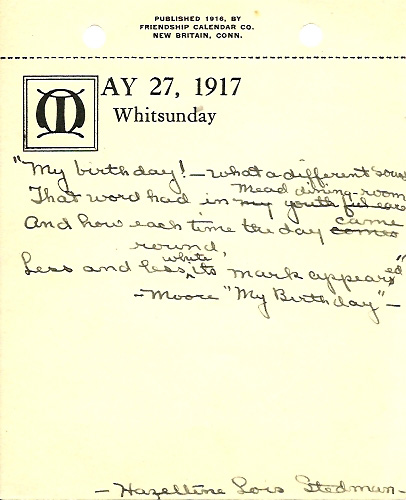 PUBLISHED 1916, BY
FRIENDSHIP CALENDAR CO.
NEW BRITAIN, CONN.
MAY 27, 1917
Whitsunday
"My birthday! — what a different soun
Mead dining-room
That word had in my youthful ears
came
And how each time the day comes
round,
Less and less white its mark appears ed"
— Moore "My Birthday" —
— Hazeltine Lois Stedman —